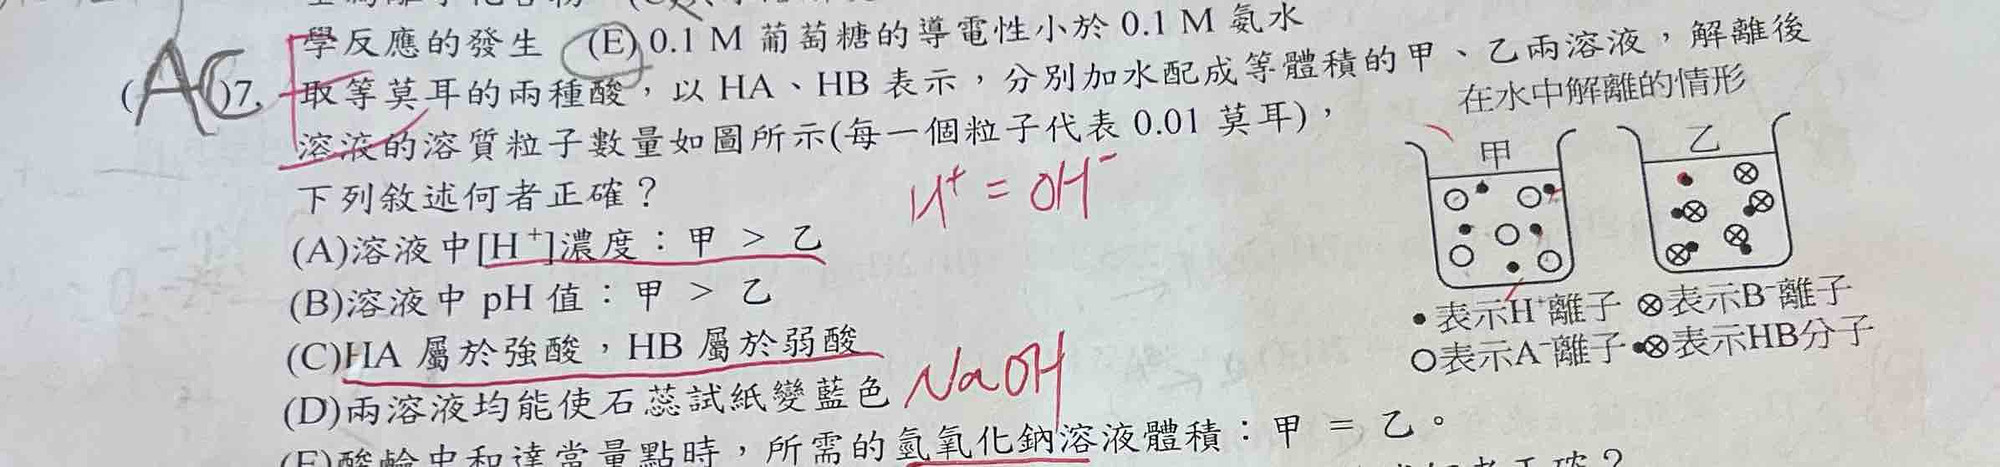 學反應的發生 (E)0.1 M 葡萄糖的導電性小於 0.1 M 氨水
( AC )7. 取等莫耳的兩種酸，以 HA、HB 表示，分別加水配成等體積的甲、乙兩溶液，解離後
溶液的溶質粒子數量如圖所示(每一個粒子代表 0.01 莫耳)，
下列敘述何者正確？
H⁺ = OH⁻
(A)溶液中[H⁺]濃度：甲 > 乙
(B)溶液中 pH 值：甲 > 乙
(C)HA 屬於強酸，HB 屬於弱酸
(D)兩溶液均能使石蕊試紙變藍色
NaOH
(E)酸鹼中和達當量點時，所需的氫氧化鈉溶液體積：甲 = 乙。
在水中解離的情形
甲
乙
●表示H⁺離子 ⊗表示B⁻離子
○表示A⁻離子 ●⊗表示HB分子